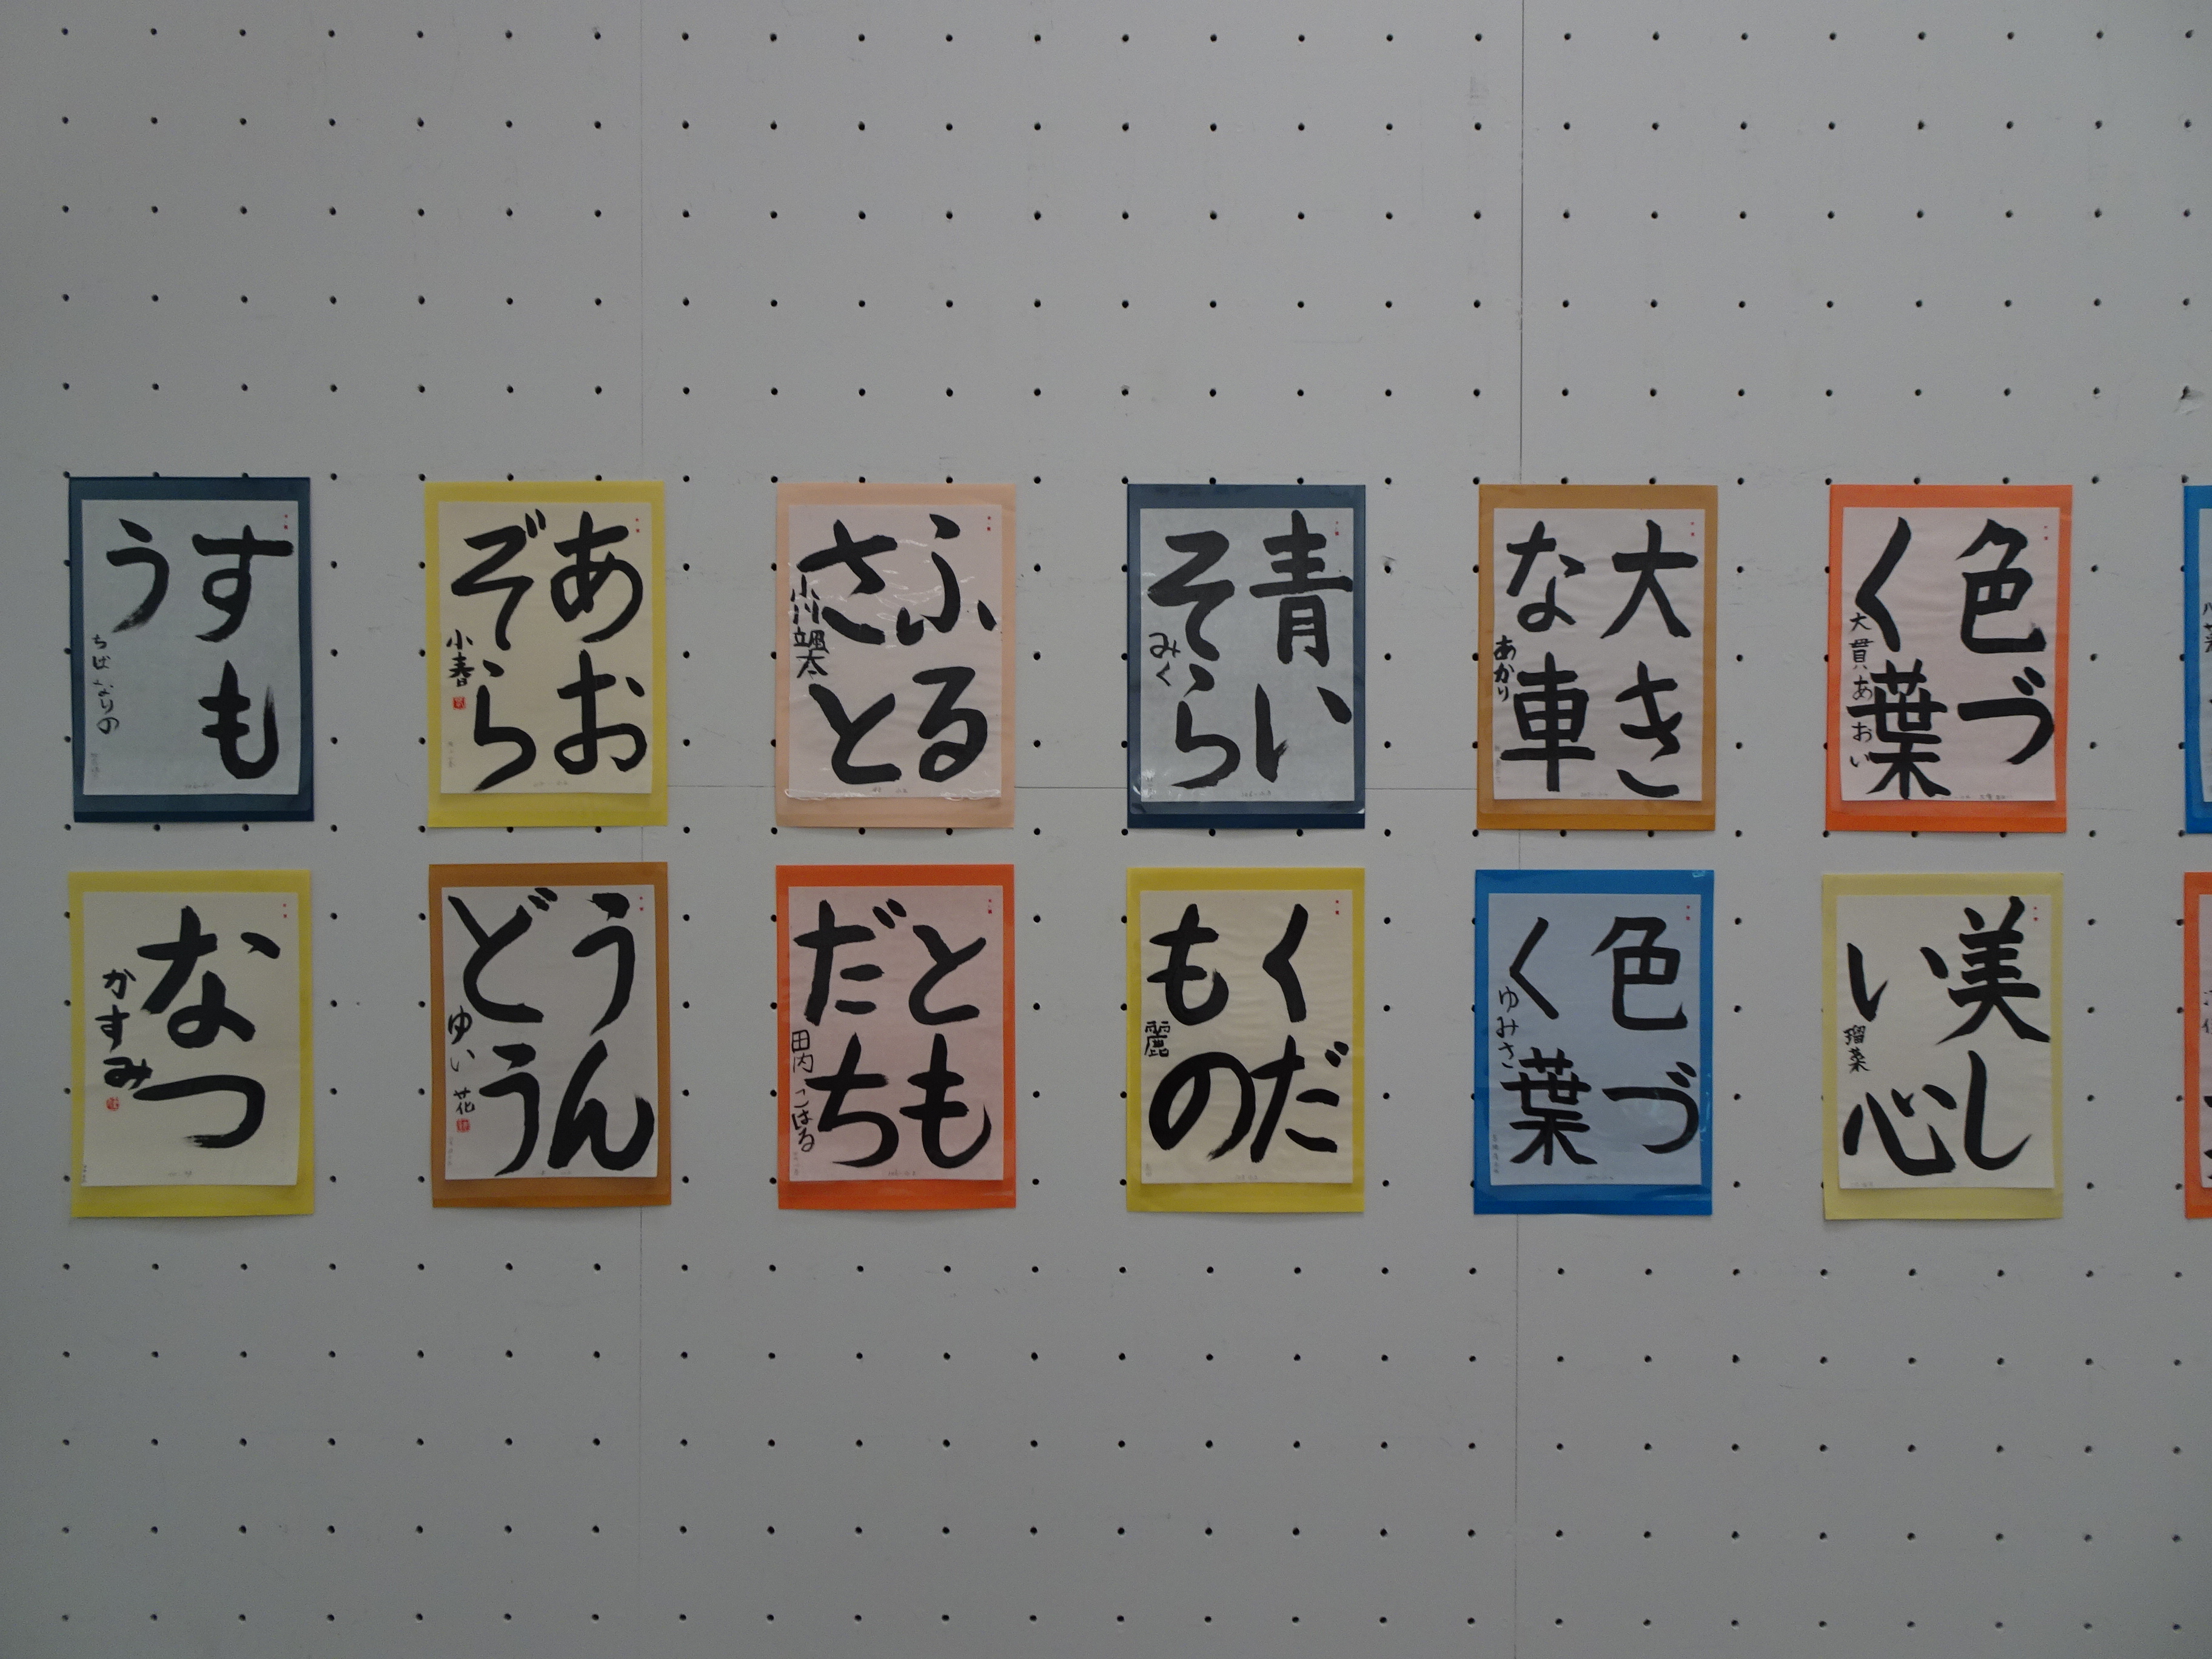 すも
う
ちば なりの
あお
ぞら
小春
ふる
さと
小川颯太
青い
そら
みく
大き
な車
あかり
色づ
く葉
大貫あおい
なつ
かすみ
うん
どう
ゆい花
とも
だち
田内こはる
くだ
もの
麗
色づ
く葉
ゆみさ
美し
い心
瑠菜